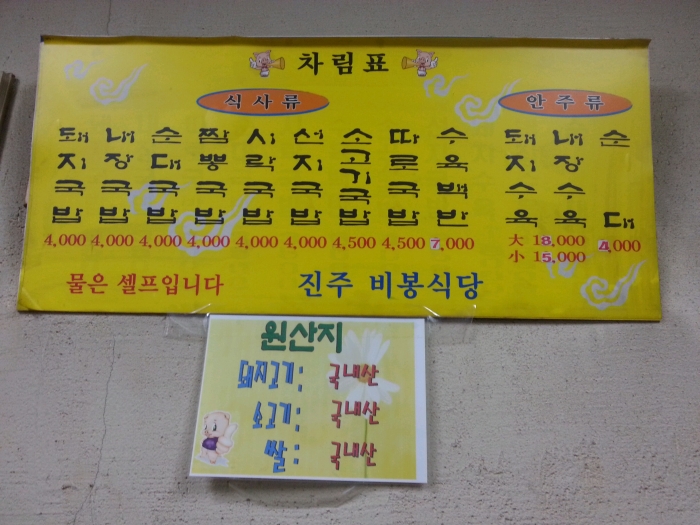 차림표
식사류
돼지국밥 내장국밥 순대국밥 짬뽕국밥 시락국밥 선지국밥 소고기국밥 따로국밥 수육백반
4,000 4,000 4,000 4,000 4,000 4,000 4,500 4,500 7,000
안주류
돼지수육 내장수육 순대
大 18,000 4,000
小 15,000
물은 셀프입니다
진주 비봉식당
원산지
돼지고기: 국내산
소고기: 국내산
쌀: 국내산